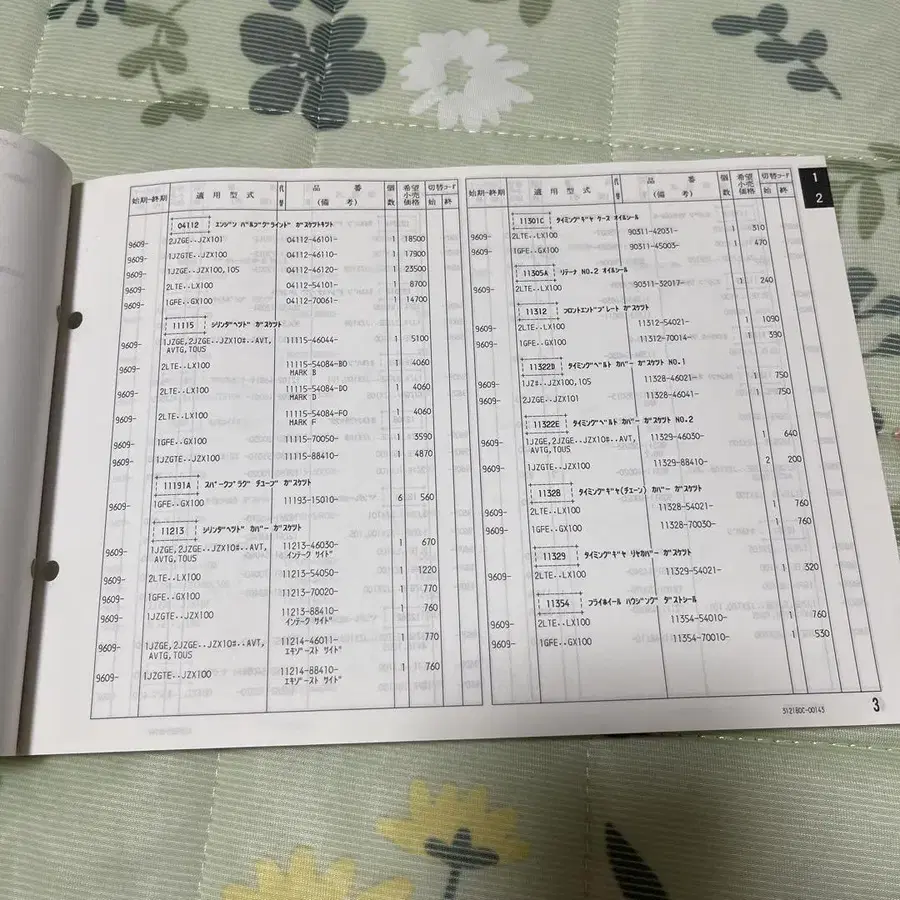 始期-終期 適用型式 代替 品番(備考) 個数 希望小売価格 切替コード 始 終
04112 エンジン バルブグラインド ガスケツトキツト
9609- 2JZGE..JZX101 04112-46101- 1 18500
9609- 1JZGTE..JZX100 04112-46110- 1 17900
9609- 1JZGE..JZX100,105 04112-46120- 1 23500
9609- 2LTE..LX100 04112-54101- 1 8700
9609- 1GFE..GX100 04112-70061- 1 14700
11115 シリンダヘツド ガスケツト
9609- 1JZGE,2JZGE..JZX10#..AVT, 11115-46044- 1 5100
AVTG,TOUS
9609- 2LTE..LX100 11115-54084-B0 1 4060
MARK B
9609- 2LTE..LX100 11115-54084-D0 1 4060
MARK D
9609- 2LTE..LX100 11115-54084-F0 1 4060
MARK F
9609- 1GFE..GX100 11115-70050- 1 3590
9609- 1JZGTE..JZX100 11115-88410- 1 4870
11191A スパークプラグ チユーブ ガスケツト
9609- 1GFE..GX100 11193-15010- 6 560
11213 シリンダヘツド カバー ガスケツト
9609- 1JZGE,2JZGE..JZX10#..AVT, 11213-46030- 1 670
AVTG,TOUS インテーク サイド
9609- 2LTE..LX100 11213-54050- 1 1220
9609- 1GFE..GX100 11213-70020- 1 770
9609- 1JZGTE..JZX100 11213-88410- 1 760
インテーク サイド
9609- 1JZGE,2JZGE..JZX10#..AVT, 11214-46011- 1 770
AVTG,TOUS エキゾースト サイド
9609- 1JZGTE..JZX100 11214-88410- 1 760
エキゾースト サイド
始期-終期 適用型式 代替 品番(備考) 個数 希望小売価格 切替コード 始 終
11301C タイミングギヤ ケース オイルシール
9609- 2LTE..LX100 90311-42031- 1 310
9609- 1GFE..GX100 90311-45003- 1 470
11305A リテーナ NO.2 オイルシール
9609- 2LTE..LX100 90311-32017- 1 240
11312 フロントエンドプレート ガスケツト
9609- 2LTE..LX100 11312-54021- 1 1090
9609- 1GFE..GX100 11312-70014- 1 390
11322D タイミングベルト カバー ガスケツト NO.1
9609- 1JZ#..JZX100,105 11328-46021- 1 750
9609- 2JZGE..JZX101 11328-46041- 1 750
11322E タイミングベルト カバー ガスケツト NO.2
9609- 1JZGE,2JZGE..JZX10#..AVT, 11329-46030- 1 640
AVTG,TOUS
9609- 1JZGTE..JZX100 11329-88410- 2 200
11328 タイミングギヤ(チエーン) カバー ガスケツト
9609- 2LTE..LX100 11328-54021- 1 760
9609- 1GFE..GX100 11328-70030- 1 760
11329 タイミングギヤ リヤカバー ガスケツト
9609- 2LTE..LX100 11329-54021- 1 320
11354 フライホイール ハウジング ダストシール
9609- 2LTE..LX100 11354-54010- 1 760
9609- 1GFE..GX100 11354-70010- 1 530
1
2
51218DC-00145
3